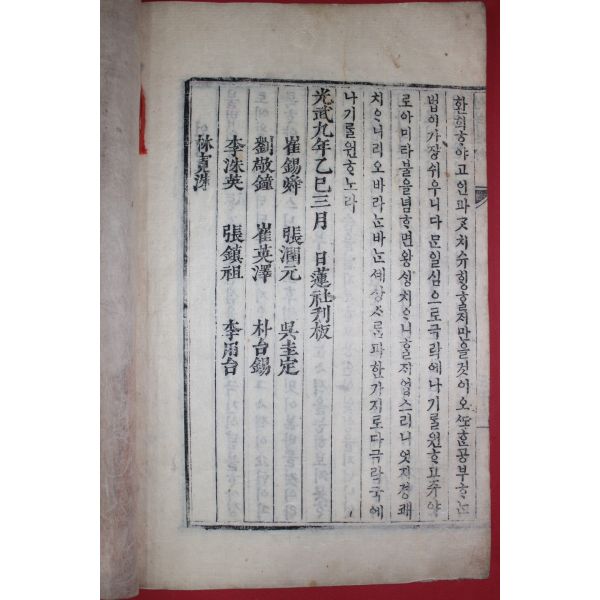 환희ᄒᆞ야고인과ᄀᆞᆺ치슈ᄒᆡᆼᄒᆞᆯ지만을것이오ᄯᅩᄒᆞᆫ공부ᄒᆞᄂᆞᆫ
법이가장쉬우니다문일심으로극락에나기ᄅᆞᆯ원ᄒᆞ고쥬야
로아미타불을념ᄒᆞ면왕ᄉᆡᆼ치못ᄒᆞ리업스리니엇지경쾌
치으니리오바라ᄂᆞᆫ바ᄂᆞᆫ셰상ᄉᆞᄅᆞᆷ과ᄒᆞᆫ가지로다극락국에
나기ᄅᆞᆯ원ᄒᆞ노라
光武九年乙巳三月 日蓮社刊板
崔錫舜 張潤元 吳圭定
劉敬鐘 崔英澤 朴台錫
李洙英 張鎮祖 李用台
林寅洙